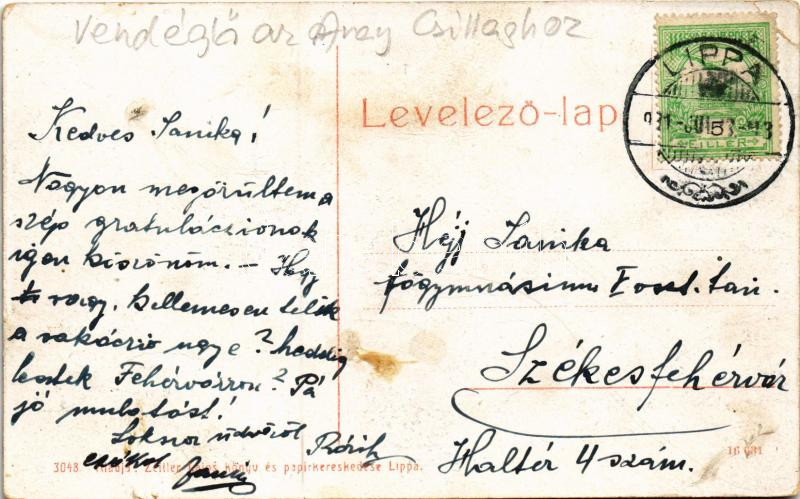 Vendéglő az Arany Csillaghoz
Levelező-lap
LIPPA
FILLÉR
Kedves Janika!
Nagyon megörültem a
szép gratulácziónak
igen köszönöm. — Hogy
vagy, kellemesen telik
a vakáczió ugy-e? meddig
lesztek Fehérváron? Pá
jó mulatást!
Sokszor üdvözöl
csókol
Héjj Janika
főgymnásium I oszt. tan.
Székesfehérvár
Haltér 4 szám.
3048 Kiadja: Zeitler Lajos könyv és papirkereskedése Lippa.
16 681